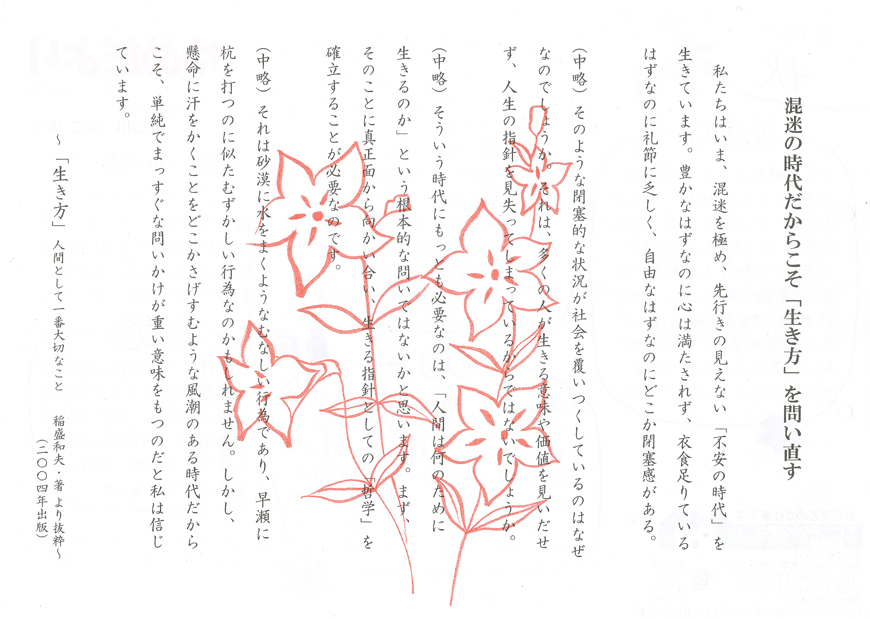 混迷の時代だからこそ「生き方」を問い直す
私たちはいま、混迷を極め、先行きの見えない「不安の時代」を
生きています。豊かなはずなのに心は満たされず、衣食足りている
はずなのに礼節に乏しく、自由なはずなのにどこか閉塞感がある。
(中略)そのような閉塞的な状況が社会を覆いつくしているのはなぜ
なのでしょうか。それは、多くの人が生きる意味や価値を見いだせ
ず、人生の指針を見失ってしまっているからではないでしょうか。
(中略)そういう時代にもっとも必要なのは、「人間は何のために
生きるのか」という根本的な問いではないかと思います。まず、
そのことに真正面から向かい合い、生きる指針としての「哲学」を
確立することが必要なのです。
(中略)それは砂漠に水をまくようなむなしい行為であり、早瀬に
杭を打つのに似たむずかしい行為なのかもしれません。しかし、
懸命に汗をかくことをどこかさげすむような風潮のある時代だから
こそ、単純でまっすぐな問いかけが重い意味をもつのだと私は信じ
ています。
~「生き方」人間として一番大切なこと 稲盛和夫・著より抜粋~
(二〇〇四年出版)